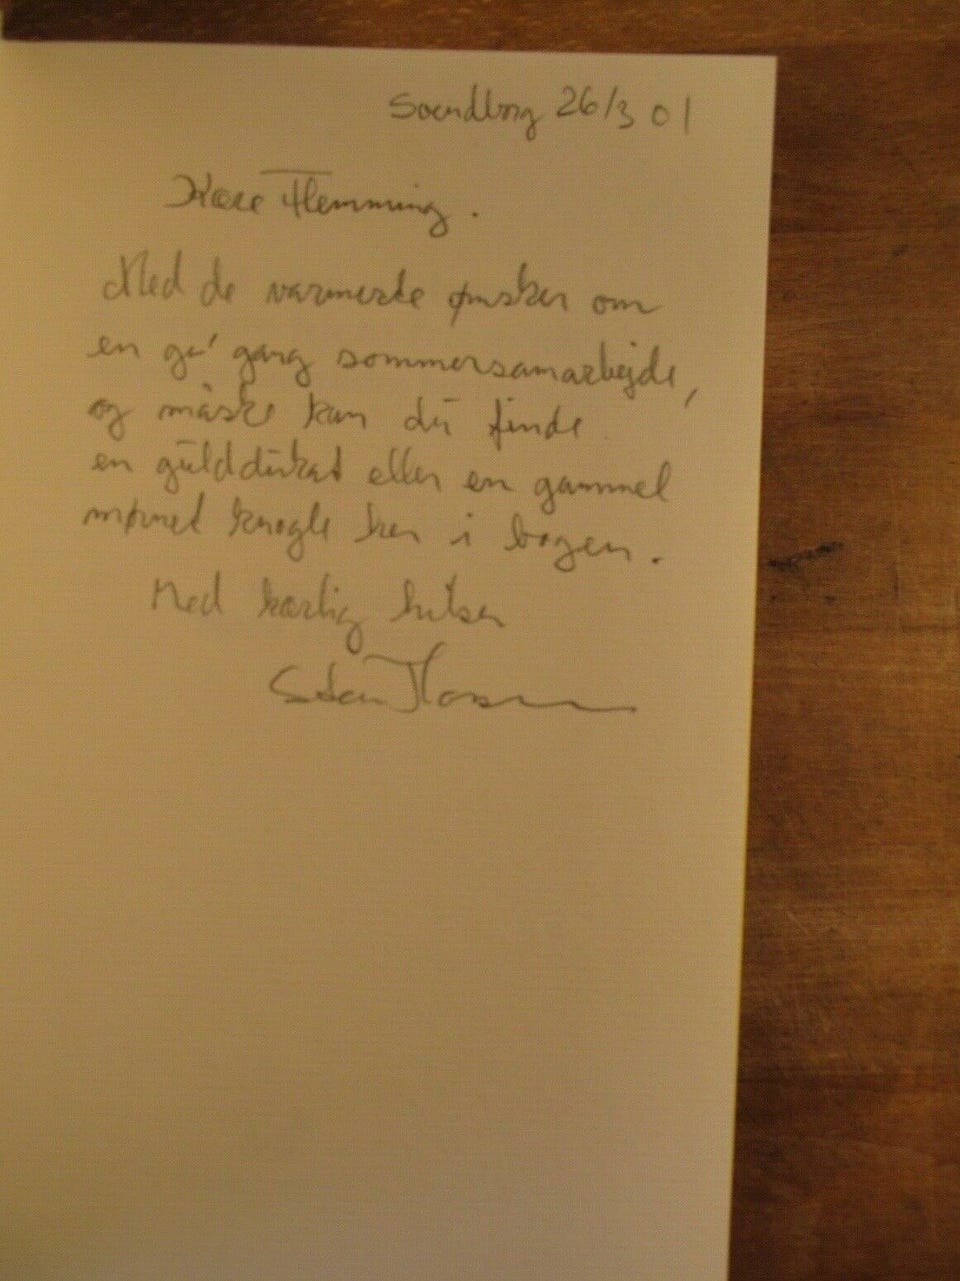 Svendborg 26/3 01
Kære Flemming.
Med de varmeste ønsker om
en ga' gang sommersamarbejde,
og måske kan du finde
en gulddukat eller en gammel
mørnet knogle her i bogen.
Med kærlig hilsen